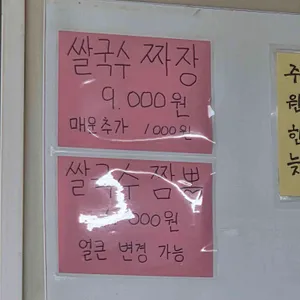 쌀국수 짜장
9.000원
매운추가 1000원
쌀국수 짬뽕
000원
얼큰 변경 가능
주
원
한
늦